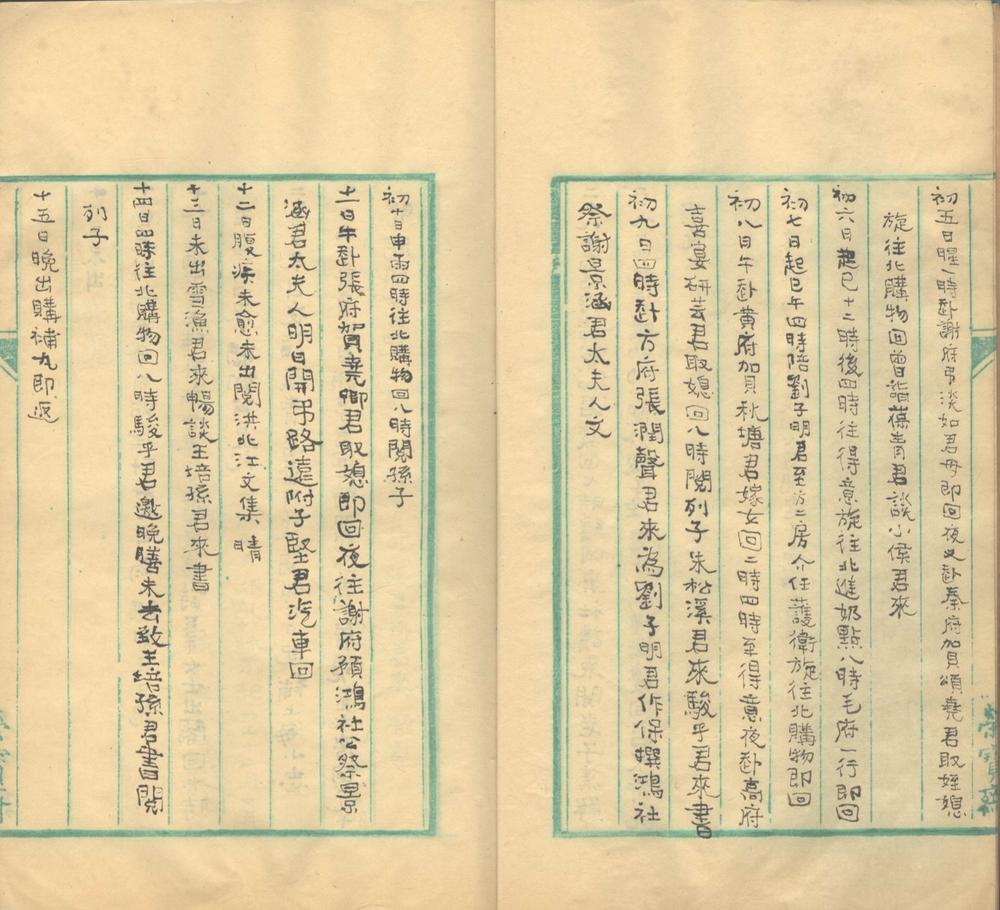 初五日晴一時赴謝府弔淡如君母即回夜又赴秦府加貝頌堯君取姪媳
旋往北購物回曾詣葆青君談小侯君來
初六日起已十二時後四時往得意旋往北進奶點八時毛府一行即回
初七日起已午四時陪劉子明君至方二房介任護衛旋往北購物即回
初八日午赴黃府加貝秋塘君嫁女回二時四時至得意夜赴高府
喜宴研芸君取媳回八時閱列子朱松溪君來駿乎君來書
初九日四時赴方府張潤聲君來為劉子明君作保撰鴻社
祭謝景涵君太夫人文
初十日申雨四時往北購物回八時閱孫子
十一日午赴張府賀堯卿君取媳即回夜往謝府預鴻社公祭景
涵君太夫人明日開弔路遠附子堅君汽車回
十二日腹疾未愈未出閱洪北江文集 晴
十三日未出雪漁君來暢談王培孫君來書
十四日四時往北購物回八時駿乎君邀晚膳未去致王培孫君書閱
列子
十五日晚出購補丸即返